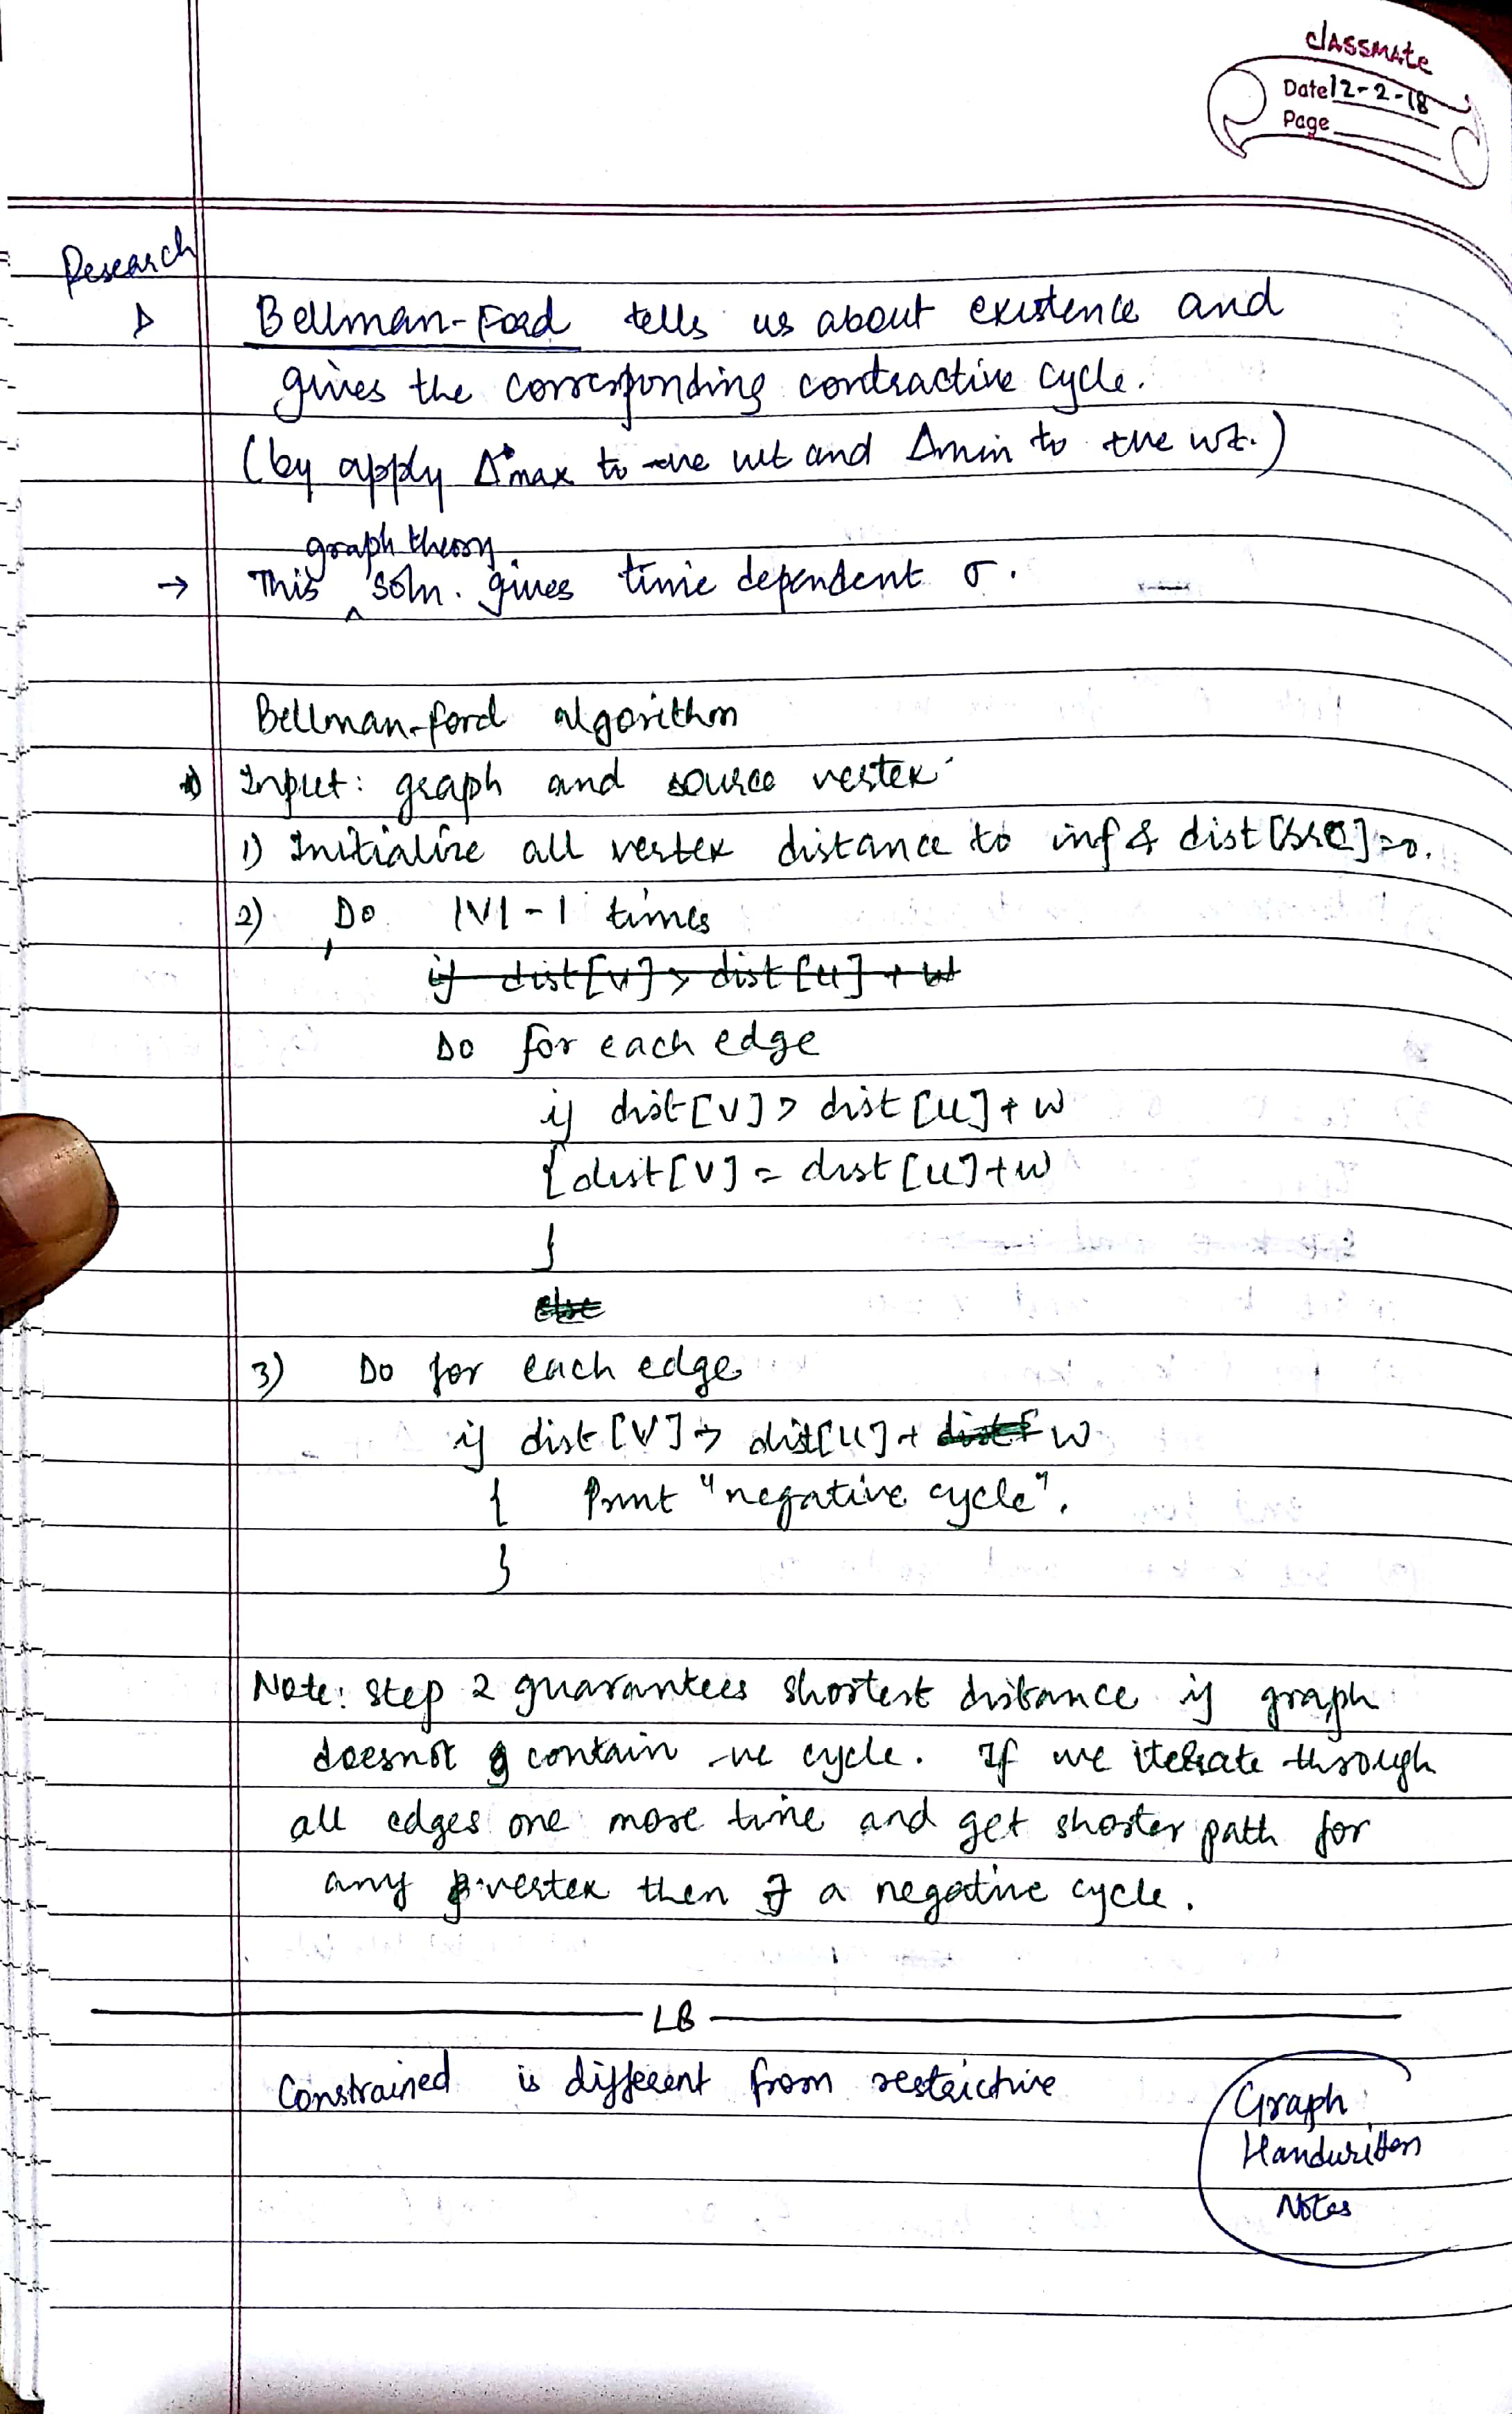 classmate
Date 12-2-18
Page
Research
Bellman-Ford tells us about existence and
gives the corresponding contractive cycle.
(by apply Δmax to -ve wt and Δmin to +ve wt.)
graph theory
→ This ^ soln. gives time dependent σ.
Bellman-ford algorithm
Input: graph and source vertex
1) Initialize all vertex distance to inf & dist[src]=0.
2) Do |V|-1 times
if dist[v] > dist[u] + w
Do for each edge
if dist[v] > dist[u] + w
{ dist[v] = dist[u] + w
}
else
3) Do for each edge
if dist[v] > dist[u] + dist[ w
{ Print "negative cycle".
}
Note: step 2 guarantees shortest distance if graph
doesnot contain -ve cycle. If we iterate through
all edges one more time and get shorter path for
any vertex then ∃ a negative cycle.
LB
Constrained is different from restrictive
Graph
Handwritten
Notes